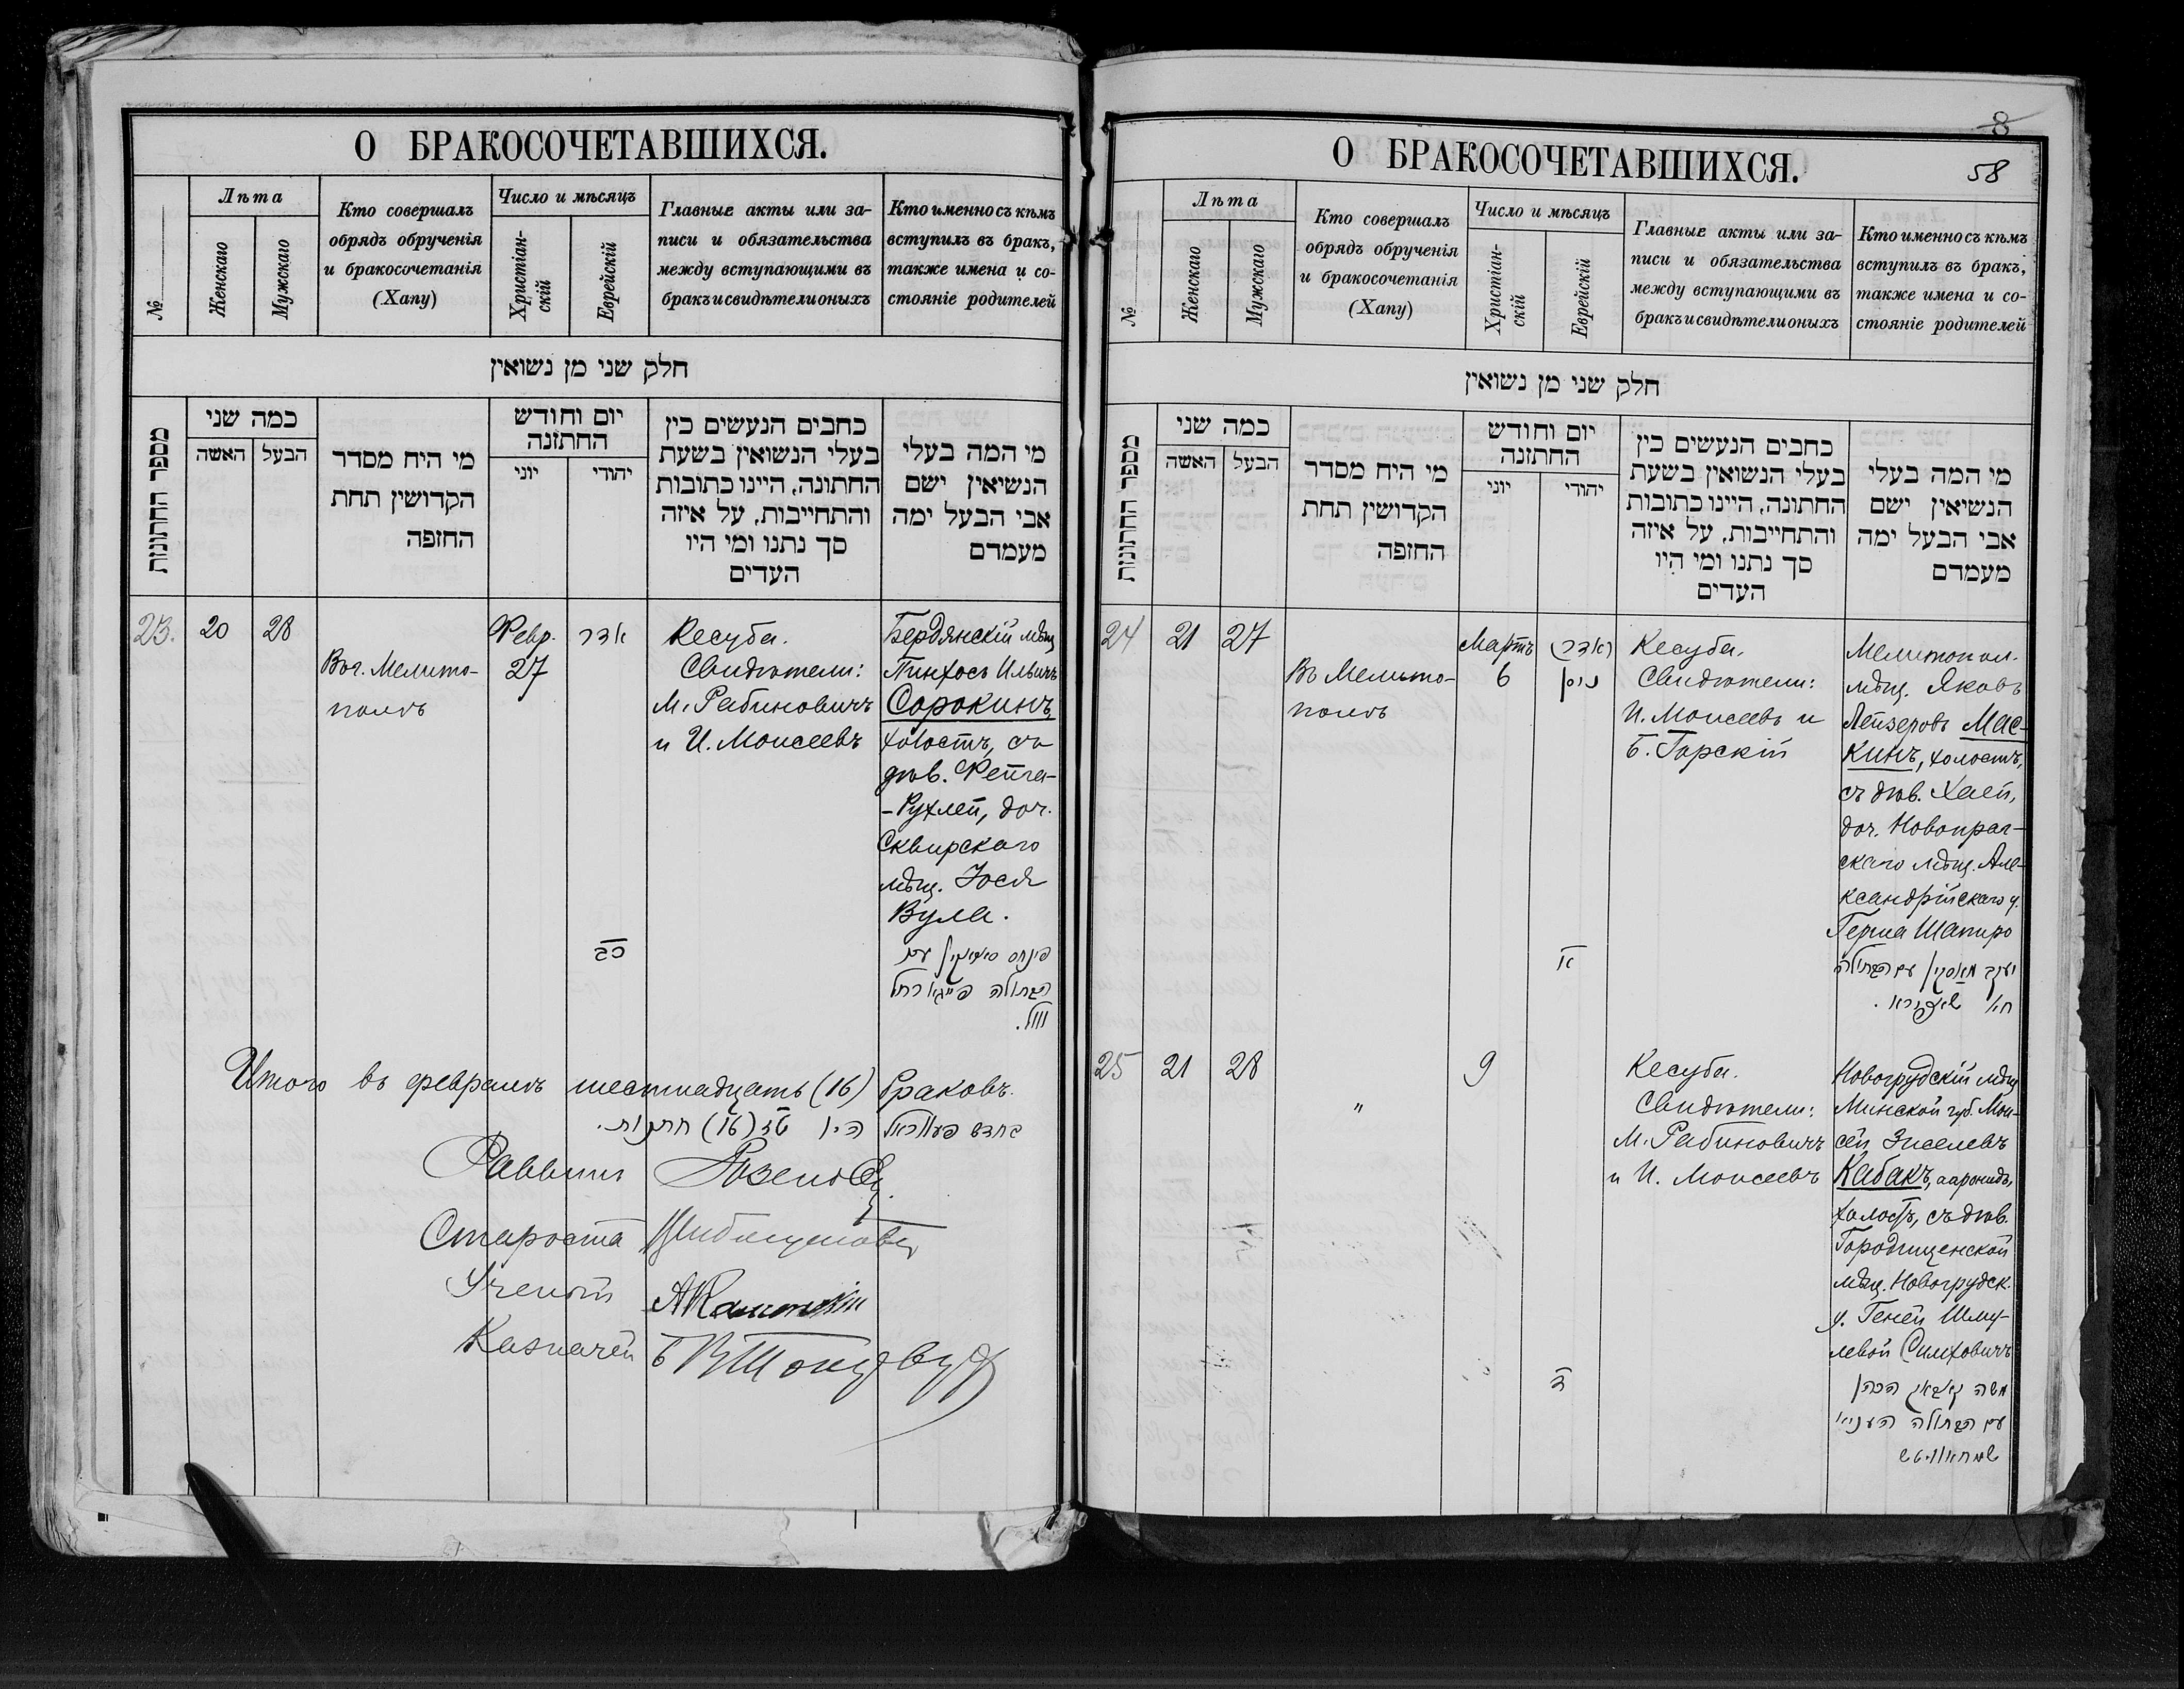 О БРАКОСОЧЕТАВШИХСЯ.
№
Лѣта
Женскаго
Мужскаго
Кто совершалъ
обрядъ обрученія
и бракосочетанія
(Хапу)
Число и мѣсяцъ
Христіан-
скій
Еврейскій
Главные акты или за-
писи и обязательства
между вступающими въ
бракъ и свидѣтели оныхъ
Кто именно съ кѣмъ
вступилъ въ бракъ,
также имена и со-
стояніе родителей
חלק שני מן נשואין
מספר החתונות
כמה שני
האשה
הבעל
מי היח מסדר
הקדושין תחת
החזפה
יום וחודש
החתזנה
יוני
יהודי
כחבים הנעשים כין
בעלי הנשואין בשעת
החתונה, היינו כתובות
והתחייבות, על איזה
סך נתנו ומי היו
העדים
מי המה בעלי
הנשיאין ישם
אבי הבעל ימה
מעמדם
23.
20
28
Въ г. Мелито-
полѣ
Февр.
27
אדר
כה
Кесуба.
Свидѣтели:
М. Рабиновичъ
и И. Моисеевъ
Бердянскій мѣщ
Пинхосъ Ильичъ
Сорокинъ
холостъ, съ
дѣв. Фейга-
-Рухлей, доч.
Сквирскаго
мѣщ. Іося
Вула.
פינחס סאראקין עם
הבתולה פייגא רחל
וול.
Итого въ февралѣ шестнадцать (16) браковъ.
בחדש פעווראל היו טז (16) חתונות.
Раввинъ
Староста
Ученый
Казначей
8
58
О БРАКОСОЧЕТАВШИХСЯ.
№
Лѣта
Женскаго
Мужскаго
Кто совершалъ
обрядъ обрученія
и бракосочетанія
(Хапу)
Число и мѣсяцъ
Христіан-
скій
Еврейскій
Главные акты или за-
писи и обязательства
между вступающими въ
бракъ и свидѣтели оныхъ
Кто именно съ кѣмъ
вступилъ въ бракъ,
также имена и со-
стояніе родителей
חלק שני מן נשואין
מספר החתונות
כמה שני
האשה
הבעל
מי היח מסדר
הקדושין תחת
החזפה
יום וחודש
החתזנה
יוני
יהודי
כחבים הנעשים כין
בעלי הנשואין בשעת
החתונה, היינו כתובות
והתחייבות, על איזה
סך נתנו ומי היו
העדים
מי המה בעלי
הנשיאין ישם
אבי הבעל ימה
מעמדם
24
21
27
Въ Мелито-
полѣ
Мартъ
6
ניסן
א
Кесуба.
Свидѣтели:
И. Моисеевъ и
Б. Горскій
Мелитопол.
мѣщ. Яковъ
Лейзеровъ Мас-
кинъ, холостъ,
съ дѣв. Хаей,
доч. Новопраг-
скаго мѣщ. Але-
ксандрійскаго у.
Герша Шапиро
יעקב מאסקין עם הבתולה
חיא שאפירא.
25
21
28
"
9
ד
Кесуба.
Свидѣтели:
М. Рабиновичъ
и И. Моисеевъ
Новогрудскій мѣщ
Минской губ. Мои-
сей Зиселевъ
Кабакъ, ааронидъ,
холостъ, съ дѣв.
Городищенской
мѣщ. Новогрудск.
у. Геней Шму-
левой Симховичъ
משה קאבאק הכהן
עם הבתולה העניא
שמחאוויטש